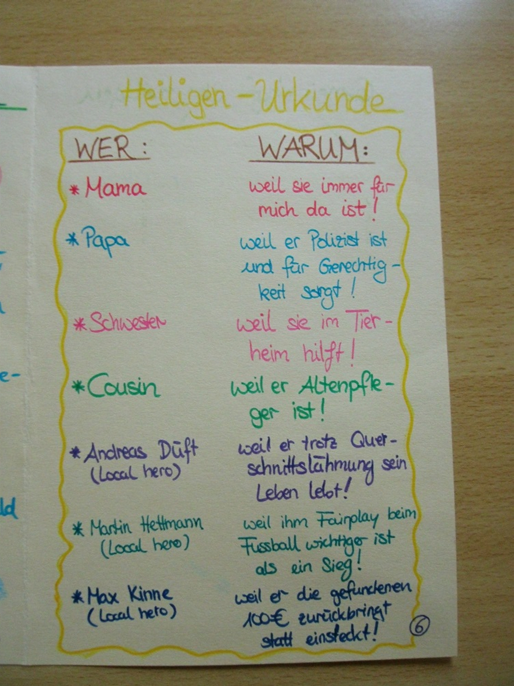 Heiligen-Urkunde
WER: WARUM:
* Mama weil sie immer für
mich da ist!
* Papa weil er Polizist ist
und für Gerechtig-
keit sorgt!
* Schwester weil sie im Tier-
heim hilft!
* Cousin weil er Altenpfle-
ger ist!
* Andreas Düft weil er trotz Quer-
(Local hero) schnittslähmung sein
Leben lebt!
* Martin Hettmann weil ihm Fairplay beim
(Local hero) Fussball wichtiger ist
als ein Sieg!
* Max Kinne weil er die gefundenen
(Local hero) 100€ zurückbringt
statt einsteckt! 6